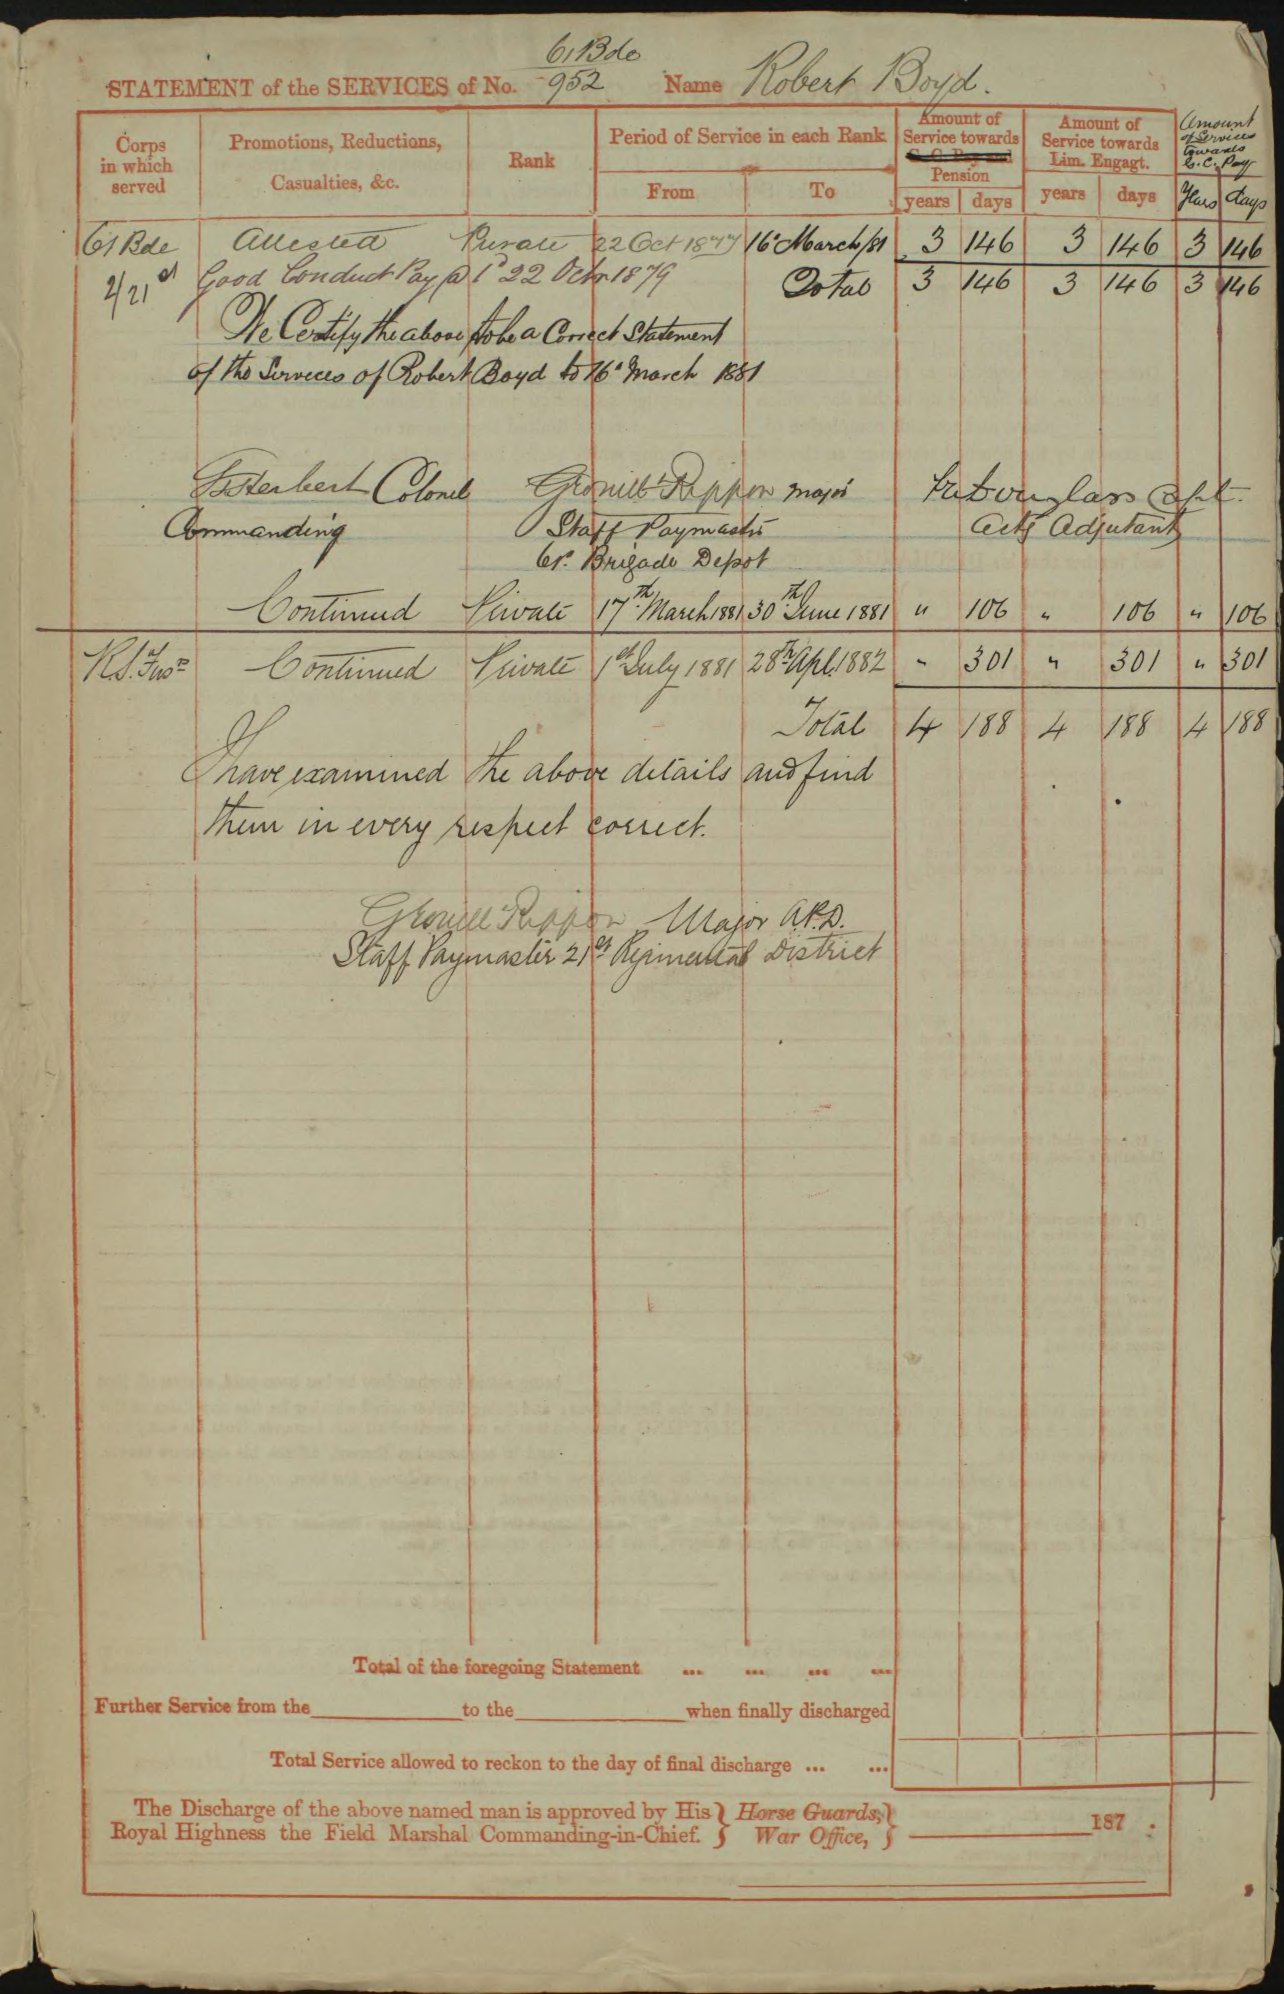 61 Bde
STATEMENT of the SERVICES of No. 952 Name Robert Boyd.
Corps in which served
Promotions, Reductions, Casualties, &c.
Rank
Period of Service in each Rank
From
To
Amount of Service towards G. C. Pay and Pension
years days
Amount of Service towards Lim. Engagt.
years days
Amount of Service towards G. C. Pay
Years days
61 Bde Attested Private 22 Oct 1877 16 March/81 3 146 3 146 3 146
2/21st Good Conduct Pay @ 1d 22 Octr 1879 Total 3 146 3 146 3 146
We Certify the above to be a Correct Statement
of the Services of Robert Boyd to 16 March 1881
Herbert Colonel Rippon Major Douglass Capt.
Commanding Staff Paymaster Actg Adjutant
61st Brigade Depot
Continued Private 17th March 1881 30th June 1881 " 106 " 106 " 106
R.S. Fusrs Continued Private 1st July 1881 28th Apl. 1882 " 301 " 301 " 301
Total 4 188 4 188 4 188
I have examined the above details and find
them in every respect correct.
Rippon Major A.P.D.
Staff Paymaster 21st Regimental District
Total of the foregoing Statement ... ... ... ...
Further Service from the to the when finally discharged
Total Service allowed to reckon to the day of final discharge ... ...
The Discharge of the above named man is approved by His } Horse Guards, }
Royal Highness the Field Marshal Commanding-in-Chief. } War Office, } 187 .